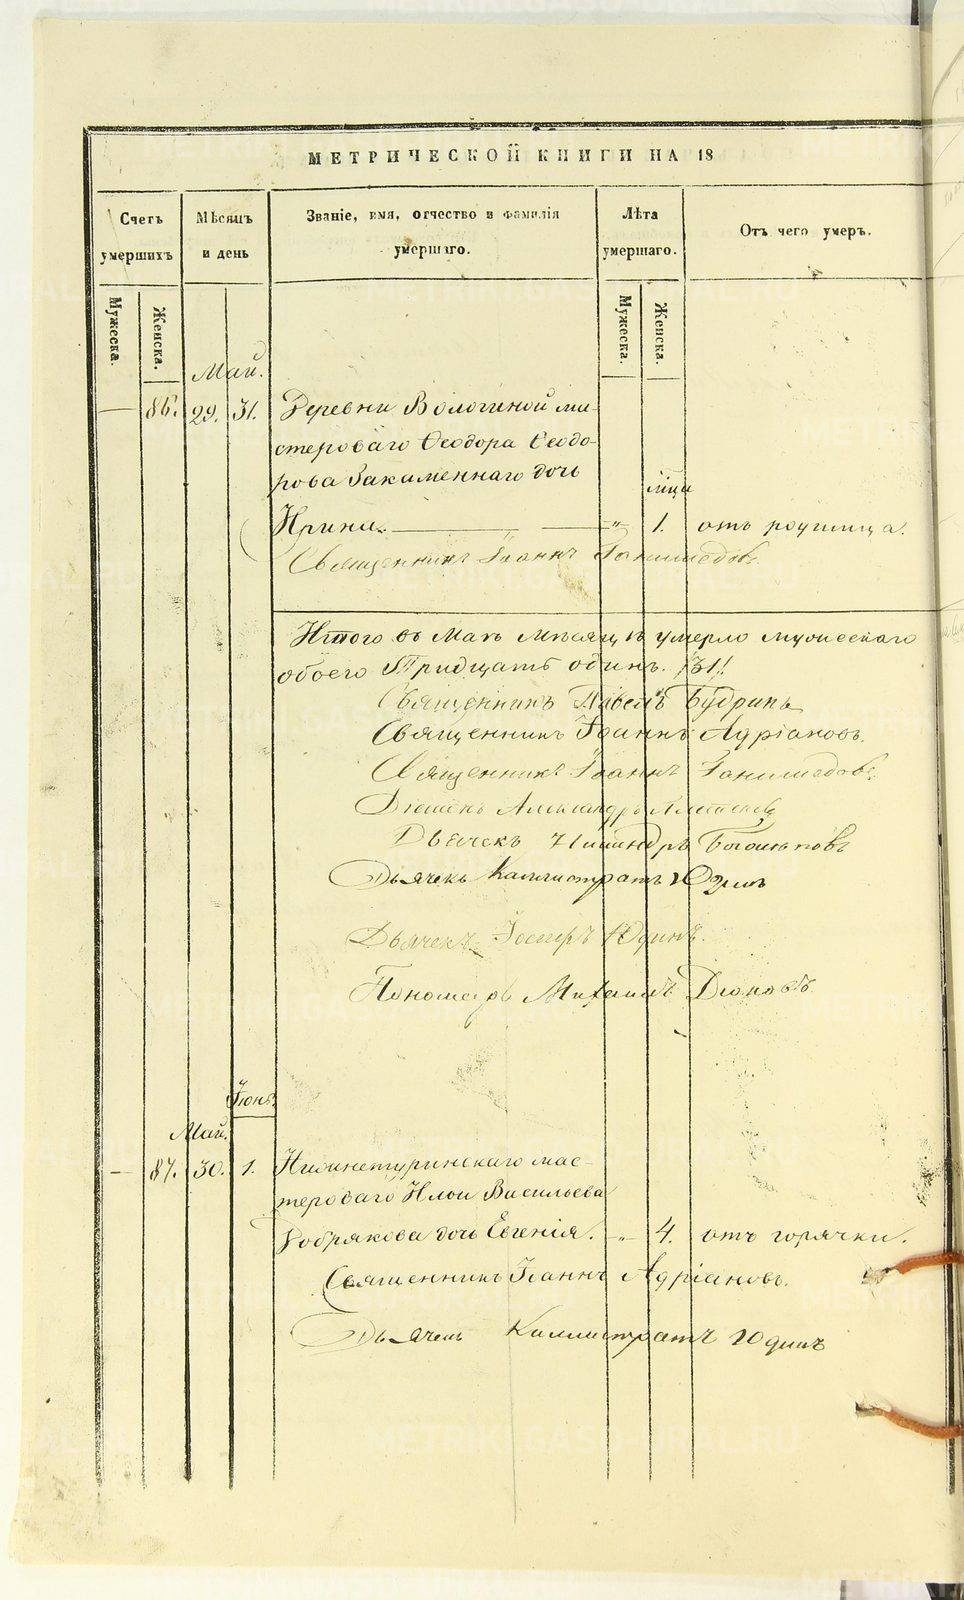 МЕТРИЧЕСКОЙ КНИГИ НА 18
Счетъ умершихъ
Мѣсяцъ и день
Званіе, имя, отчество и фамилія умершаго.
Лѣта умершаго.
Отъ чего умеръ.
Мужеска.
Женска.
Мужеска.
Женска.
Май.
— 86. 29. 31. Деревни Вологиной ма-
стероваго Ѳеодора Ѳеодо-
рова Закаменнаго дочь
мца
Ирина. — „ 1. отъ родимца.
Священникъ Іоаннъ Ганимедовъ.
Итого въ Маѣ Мѣсяцѣ умерло мужескаго
обоего Тридцать одинъ. /31/.
Священникъ Павелъ Будринъ
Священникъ Іоаннъ Адріановъ.
Священникъ Іоаннъ Ганимедовъ.
Діаконъ Александръ
Дьячекъ
Дьячекъ Каллистратъ Юдинъ
Дьячекъ Юдинъ.
Пономарь Михаилъ
Іюнь.
Май.
— 87. 30. 1. Нижнетуринскаго мас-
тероваго Ильи Васильева
Добрякова дочь Евгенія. „ 4. отъ горячки.
Священникъ Іоаннъ Адріановъ.
Дьячекъ Каллистратъ Юдинъ
METRIKI.GASO-URAL.RU